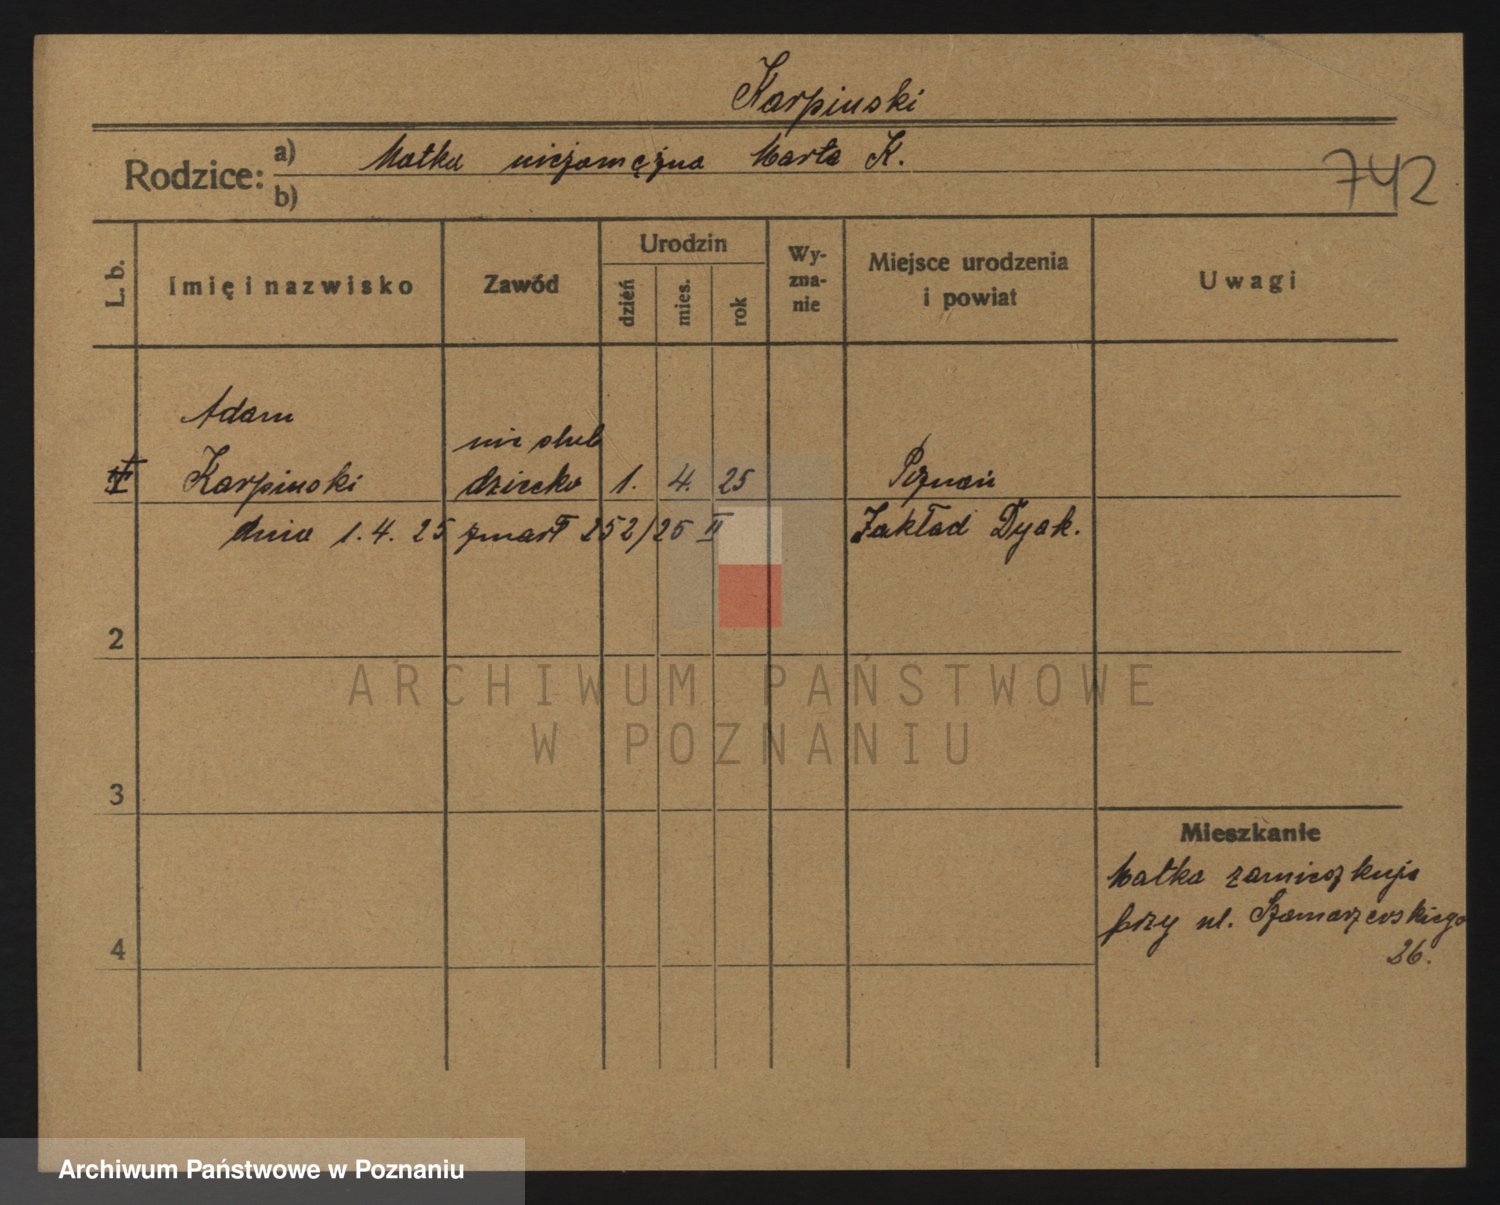 Karpinski
Rodzice: a) Matka niezamężna Marta K.
b)
742
L. b.
Imię i nazwisko
Zawód
Urodzin
dzień
mies.
rok
Wy-
zna-
nie
Miejsce urodzenia
i powiat
Uwagi
Adam
Karpinski
nie ślub
dziecko
1. 4. 25
Poznań
dnia 1. 4. 25 zmarł 252/25 II
Zakład Dyak.
2
3
4
Mieszkanie
Matka zamieszkuje
przy ul. Szamarzewskiego
26.
ARCHIWUM PAŃSTWOWE
W POZNANIU
Archiwum Państwowe w Poznaniu